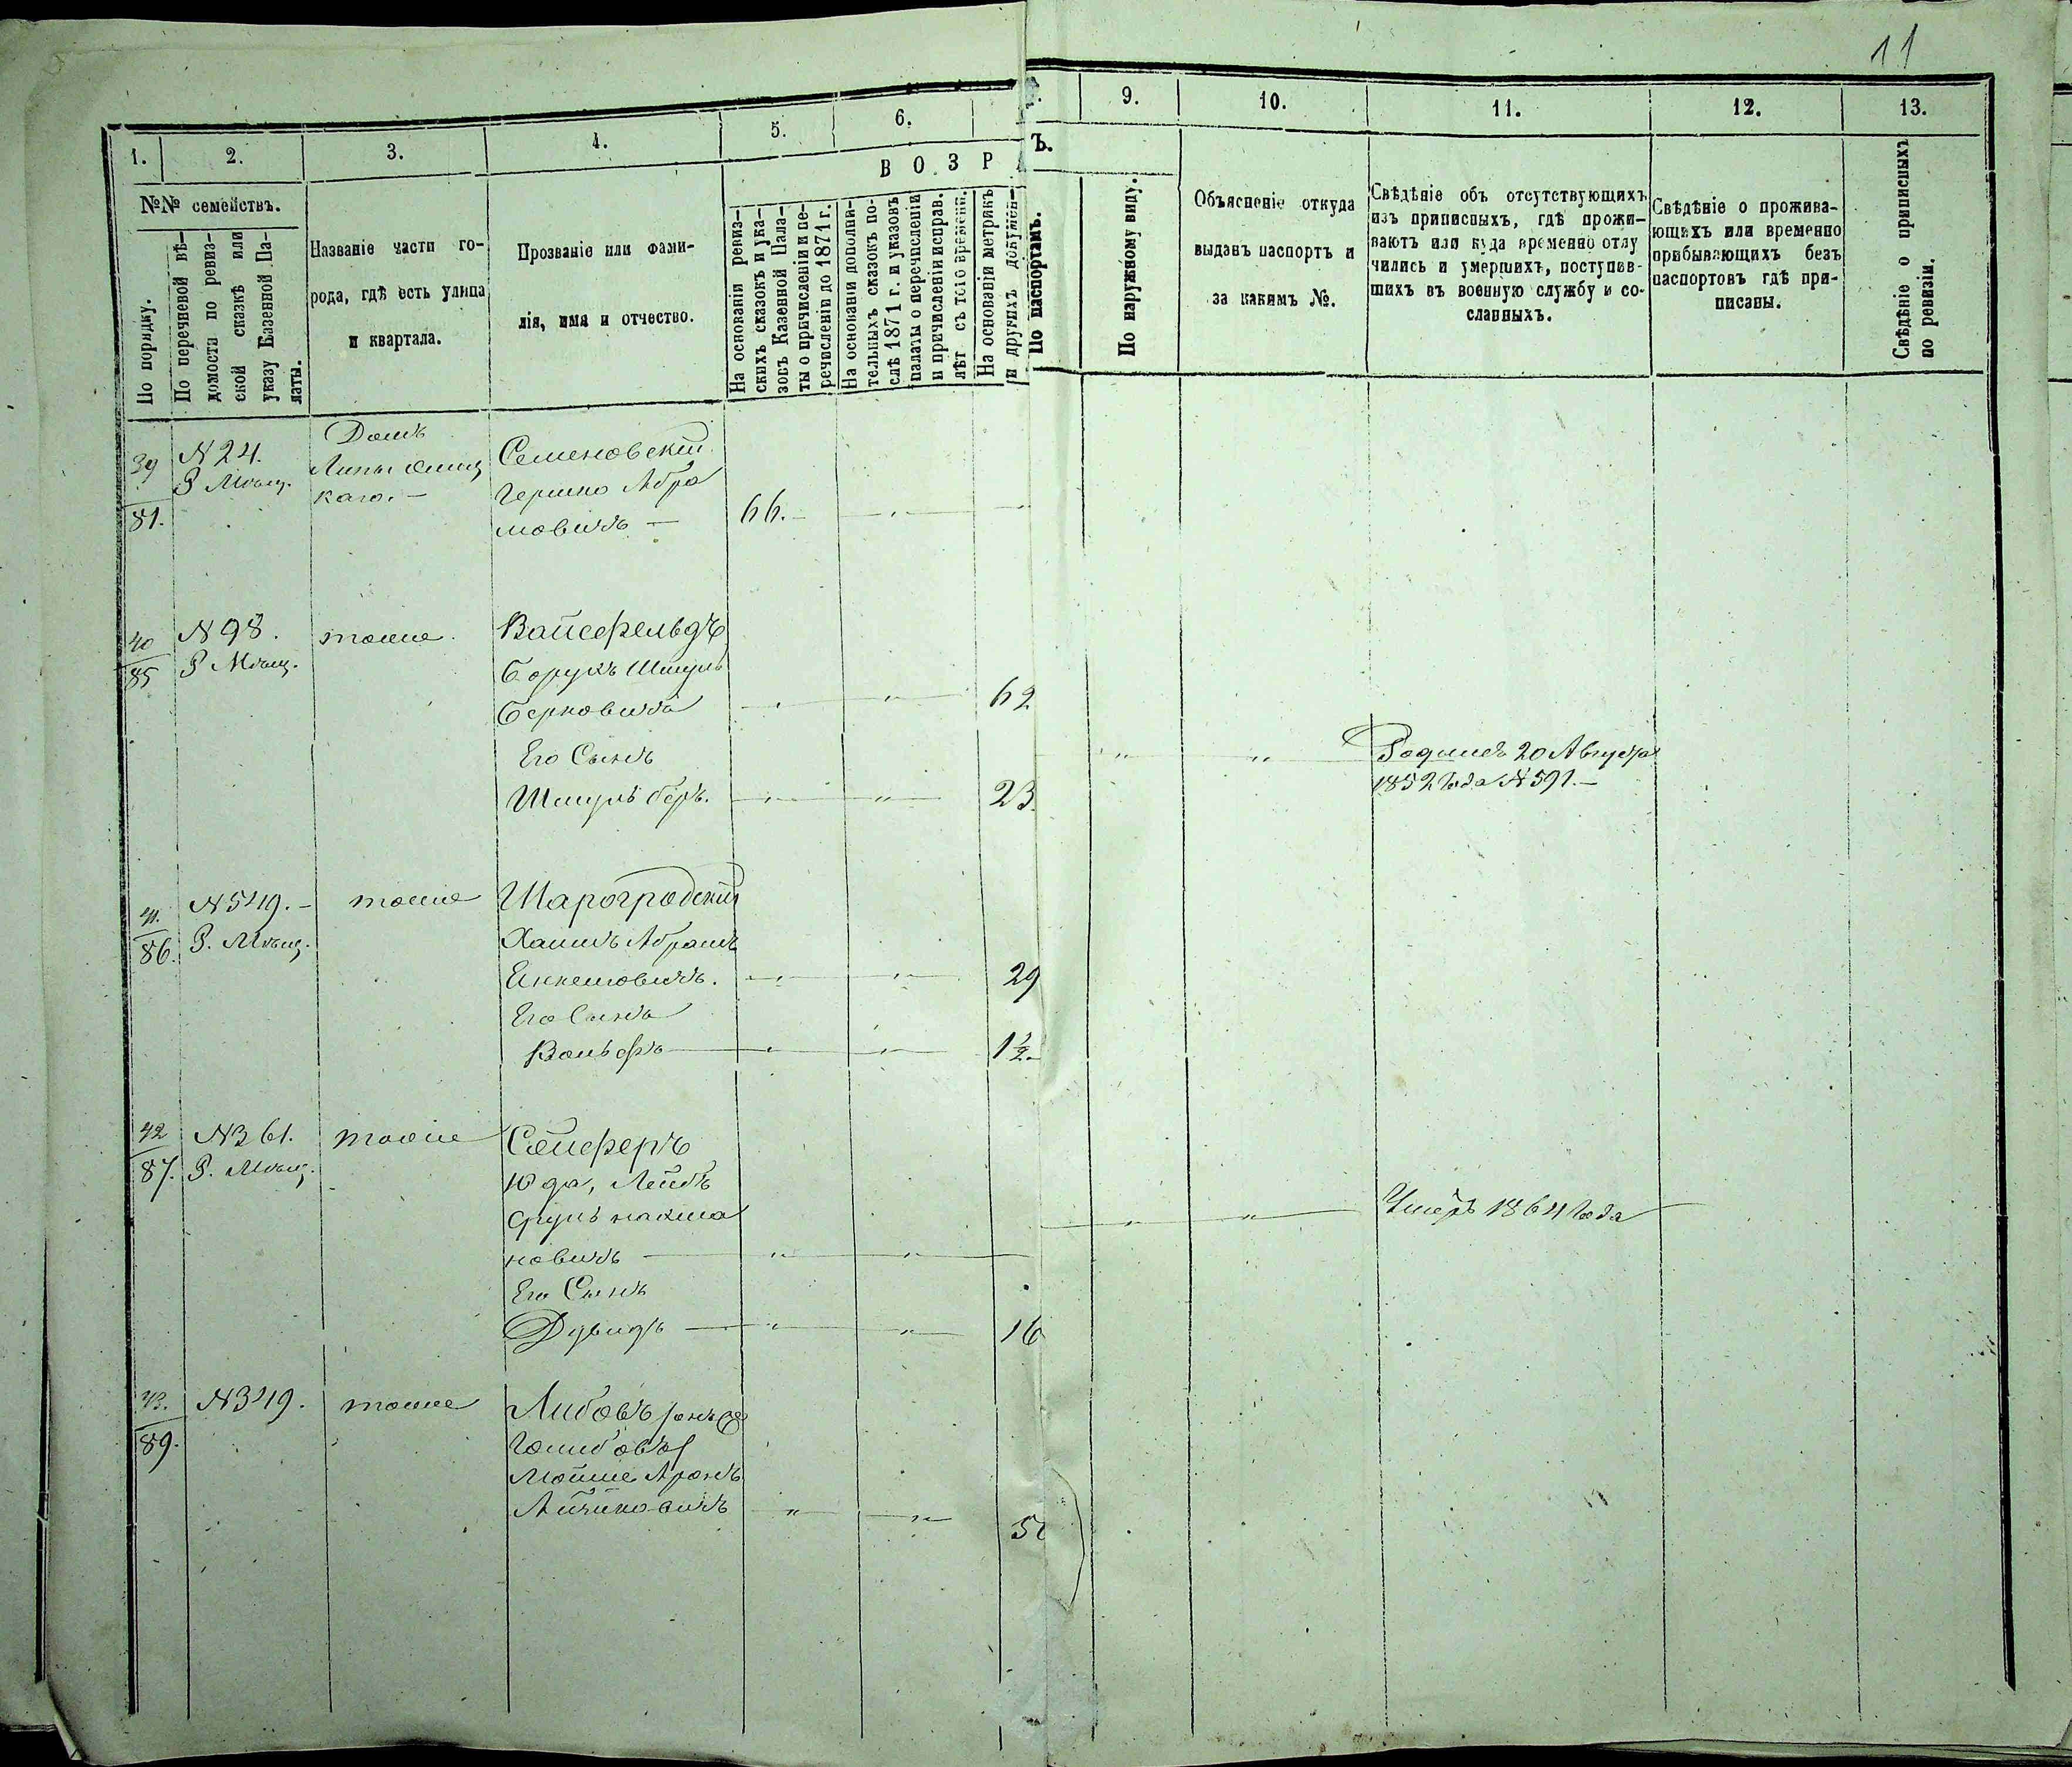 11
1.
2.
3.
4.
5.
6.
9.
10.
11.
12.
13.
В О З Р А
Ъ.
№№ семействъ.
По порядку.
По перечневой вѣ-
домости по ревиз-
ской сказкѣ или
указу Казенной Па-
латы.
Названіе части го-
рода, гдѣ есть улица
и квартала.
Прозваніе или фами-
лія, имя и отчество.
На основаніи ревиз-
скихъ сказокъ и ука-
зовъ Казенной Пала-
ты о причисленіи и пе-
речисленіи до 1871 г.
На основаніи дополни-
тельныхъ сказокъ по-
слѣ 1871 г. и указовъ
палаты о перечисленіи
и причисленіи исправ.
лѣт съ того времени.
На основаніи метрикъ
и другихъ докумен-
По паспортамъ.
По наружному виду.
Объясненіе откуда
выданъ паспортъ и
за какимъ №.
Свѣдѣніе объ отсутствующихъ
изъ приписныхъ, гдѣ прожи-
ваютъ или куда временно отлу
чились и умершихъ, поступив-
шихъ въ военную службу и со-
сланныхъ.
Свѣдѣніе о прожива-
ющихъ или временно
прибывающихъ безъ
паспортовъ гдѣ при-
писаны.
Свѣдѣніе о приписныхъ
по ревизіи.
39
81.
N 24.
Р Мѣщ.
Домъ
каго. –
Семеновскій
Гершко Абра
мовичъ –
66. –
40
85
N 98.
Р Мѣщ.
тоже.
Вайсфельдъ
Борухъ Шмуль
Берковичъ
62
Его Сынъ
Шмуль Беръ.
23.
Родился 20 Августа
1852 года N 591. –
41.
86.
N 549. –
Р. Мѣщ.
тоже
Шарогродскій
Хаимъ Абрамъ
Янкелевичъ.
29
Его Сынъ
Вольфъ
1½
42
87.
N 361.
Р. Мѣщ.
тоже
Сойферъ
Юда, Лейбъ
Сруль нахма
новичъ
Умеръ 1864 года
Его Сынъ
Дувидъ
16
43.
89.
N 349.
тоже
Либовъ онъ же
Голибовъ
Мойше Аронъ
Айзиковичъ